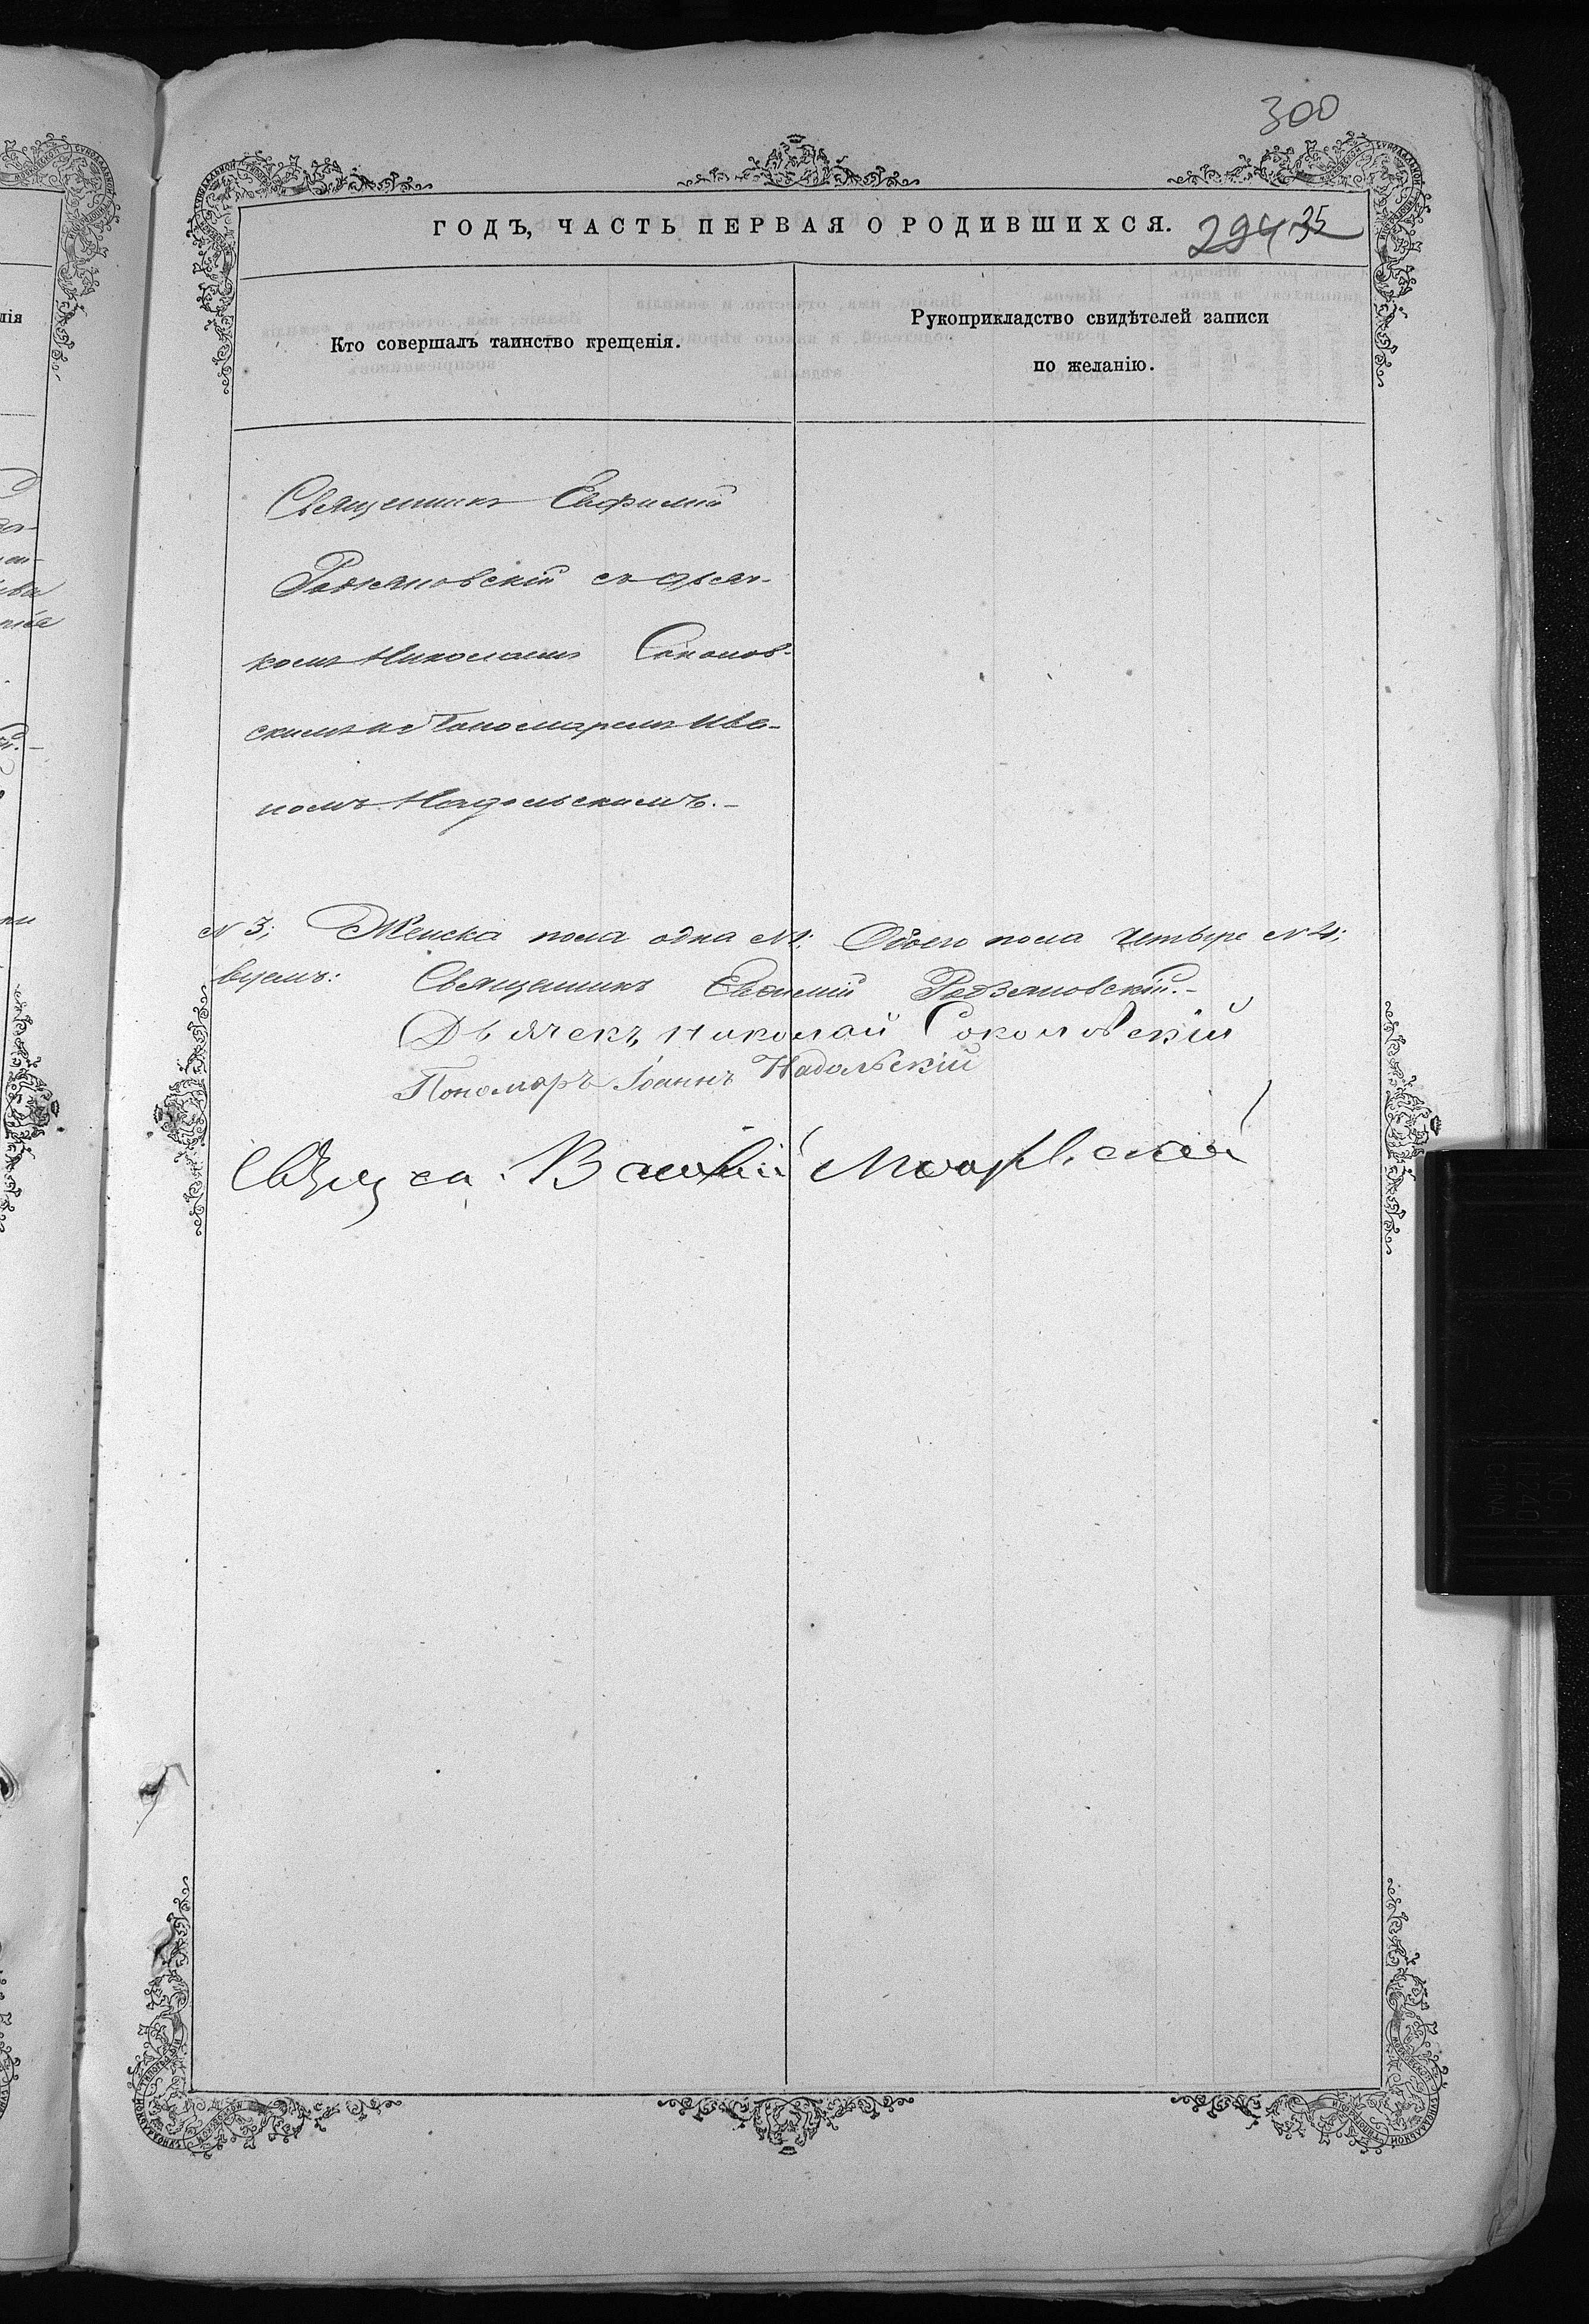 300
ГОДЪ, ЧАСТЬ ПЕРВАЯ О РОДИВШИХСЯ.
294 35
Кто совершалъ таинство крещенія.
Рукоприкладство свидѣтелей записи
по желанію.
Священникъ Евфимій
съ дьяч-
комъ Николаемъ Соколов-
скимъ и Пономаремъ Ива-
номъ Надольскимъ.-
№ 3; Женска пола одна №1: Обоего пола четыре №4;
вуемъ: Священникъ Евѳимій
Дьячекъ Николай Соколовскій
Пономаръ Іоаннъ Надольскій